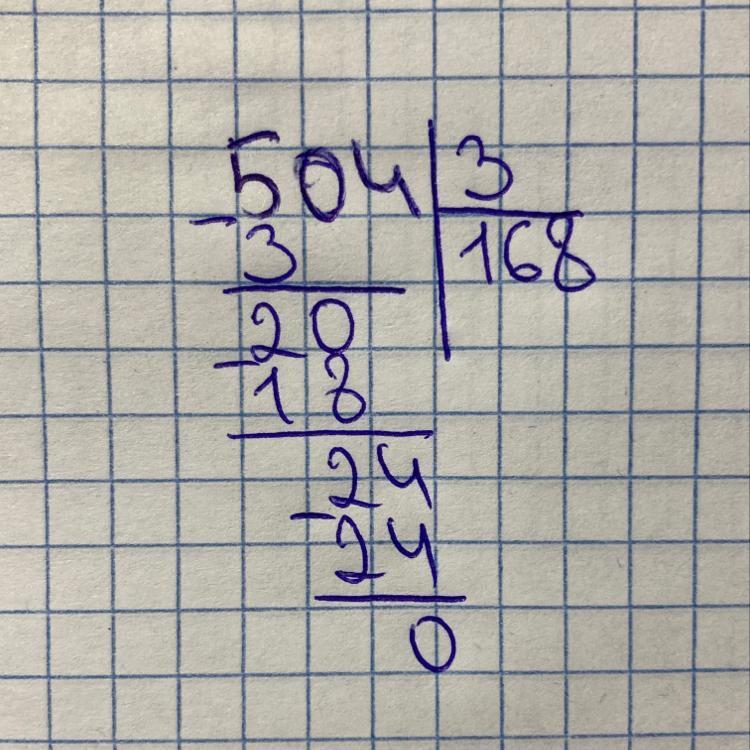 504 3
- 3 168
20
- 18
24
- 24
0